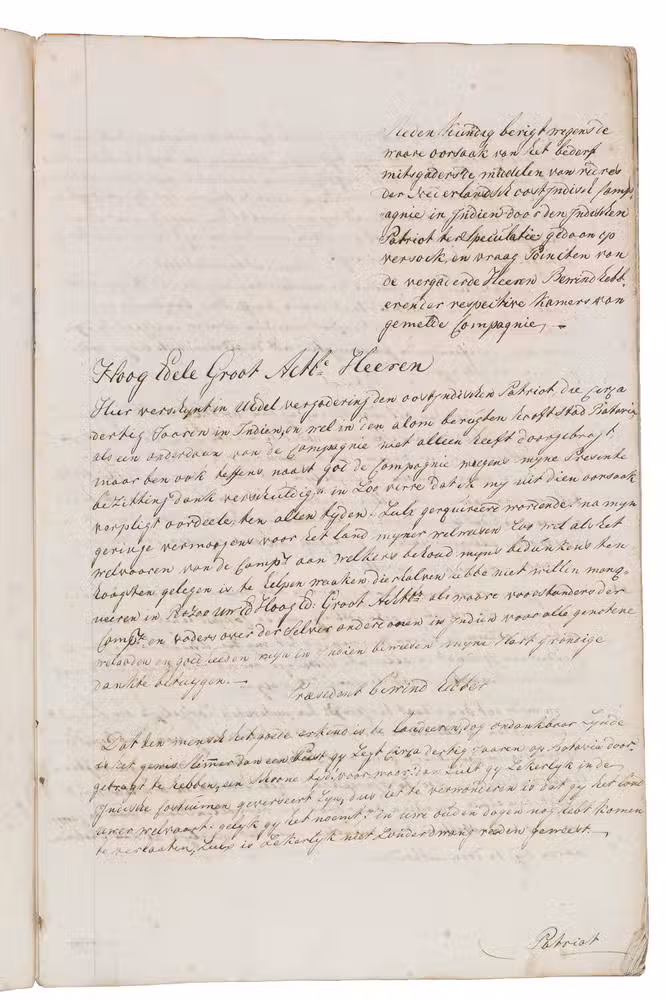 Reden kundig berigt wegens de
waare oorsaak van het bederf
mitsgaders de middelen van redres
der Nederlandsch oostjndisch Comp-
agnie in Jndien door den Jndischen
Patriot ter Speculatie gedaan op
versoek, en vraag Poincten van
de vergaderde Heeren Bewind hebb-
eren der respective Kamers van
gemelde Compagnie, –
Hoog Edele Groot Achtb:e Heeren
Hier verschynt in UEdel vergadering den oostjndischen Patriot, die Cirza
dertig Jaaren in Indien, en wel in den alom berugten hooft stad Batavia
als een onderdaan van de Compagnie niet alleen heeft doorgebragt,
maar ben ook teffens naast god de Compagnie wegens myne Presente
bezitting dank verschuldigt in Zoo verre dat ik my uit dien oorsaak
verpligt oordeele, ten allen tyden, Zulx gerequireerd wordende, na myn
geringe vermoogens voor het land myner welweesen Zoo wel als het
welvaaren van de Comp: aan welkers behoud myns bedunkens ten
hoogsten gelegen is te helpen waaken dierhalven hebbe niet willen manq-
ueeren in UwEd Hoog Ed: Groot Achtb: als waare voorstanders der
Comp: en vaders over der Selver onderdanen in Indien voor alle genotene
weldaaden en goed heeden myn in Indien bewesen myne Hart grondige
dankte betuygen. –
Præsident bewind hebber
Dat een mensch het goede erkend is te Laudeeren, dog ondankbaar Zynde
is het gewis Slimmer dan een beest gy Zegt Cirza dertig Jaaren op Batavia door-
gebragt te hebben, een schoone tyd voorwaar: dan Zult gy Zekerlyk in de
Indische Costuimen geverseert Zyn, dus het te verwonderen is dat gy het Land
uwer welvaart: gelyk gy het noemt: in uwe oude dagen nog hebt komen
te verlaaten, Zulx is Zekerlyk niet Zonder dwang reeden geweest. –
Patriot